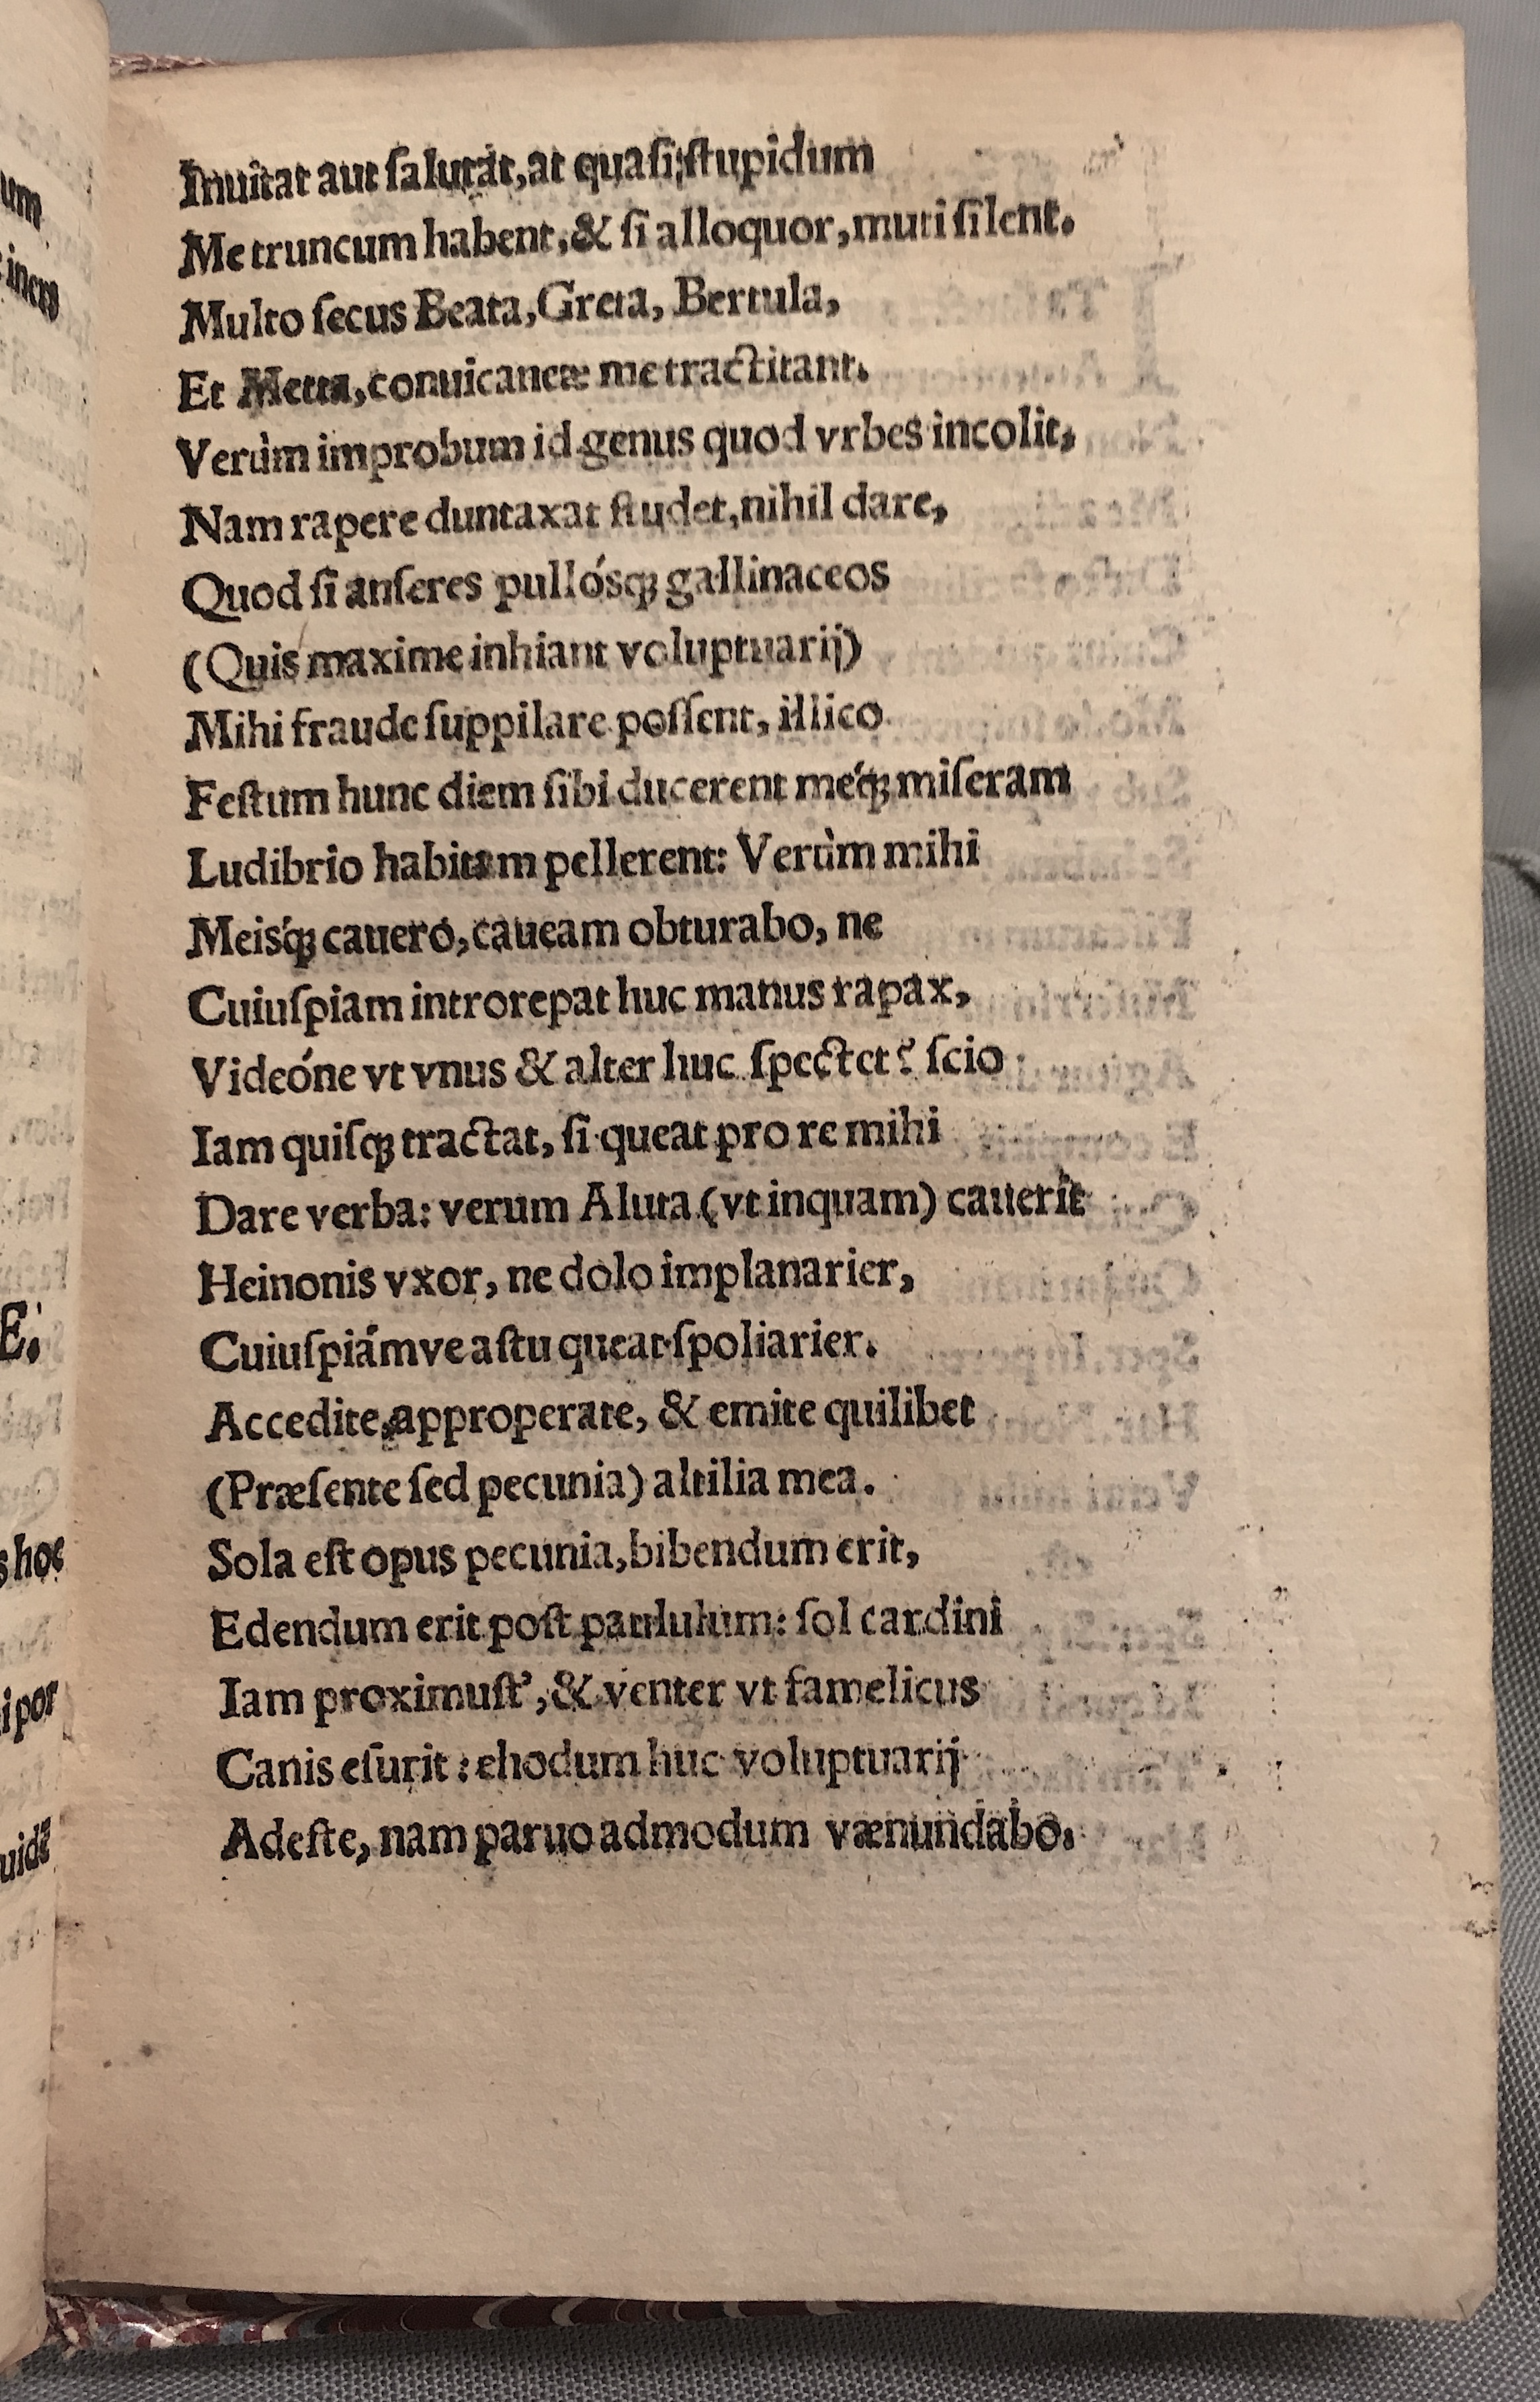 Inuitat aut ſalutat, at quaſi ſtupidum
Me truncum habent, & ſi alloquor, muti ſilent.
Multo ſecus Beata, Greta, Bertula,
Et Metta, conuicaneæ me tractitant.
Verùm improbum id genus quod vrbes incolit,
Nam rapere duntaxat ſtudet, nihil dare,
Quod ſi anſeres pullósq; gallinaceos
(Quis maxime inhiant voluptuarij)
Mihi fraude ſuppilare poſſent, illico
Feſtum hunc diem ſibi ducerent meq́; miſeram
Ludibrio habitam pellerent: Verùm mihi
Meisq́; cauero, caueam obturabo, ne
Cuiuſpiam introrepat huc manus rapax,
Videóne vt vnus & alter huc ſpectet? ſcio
Iam quiſq; tractat, ſi queat pro re mihi
Dare verba: verum Aluta (vt inquam) cauerit
Heinonis vxor, ne dolo implanarier,
Cuiuſpiámve aſtu queat ſpoliarier.
Accedite, approperate, & emite quilibet
(Præſente ſed pecunia) altilia mea.
Sola eſt opus pecunia, bibendum erit,
Edendum erit poſt paululum: ſol cardini
Iam proximuſt’, & venter vt famelicus
Canis eſurit: ehodum huc voluptuarij
Adeſte, nam paruo admodum vænundabo.